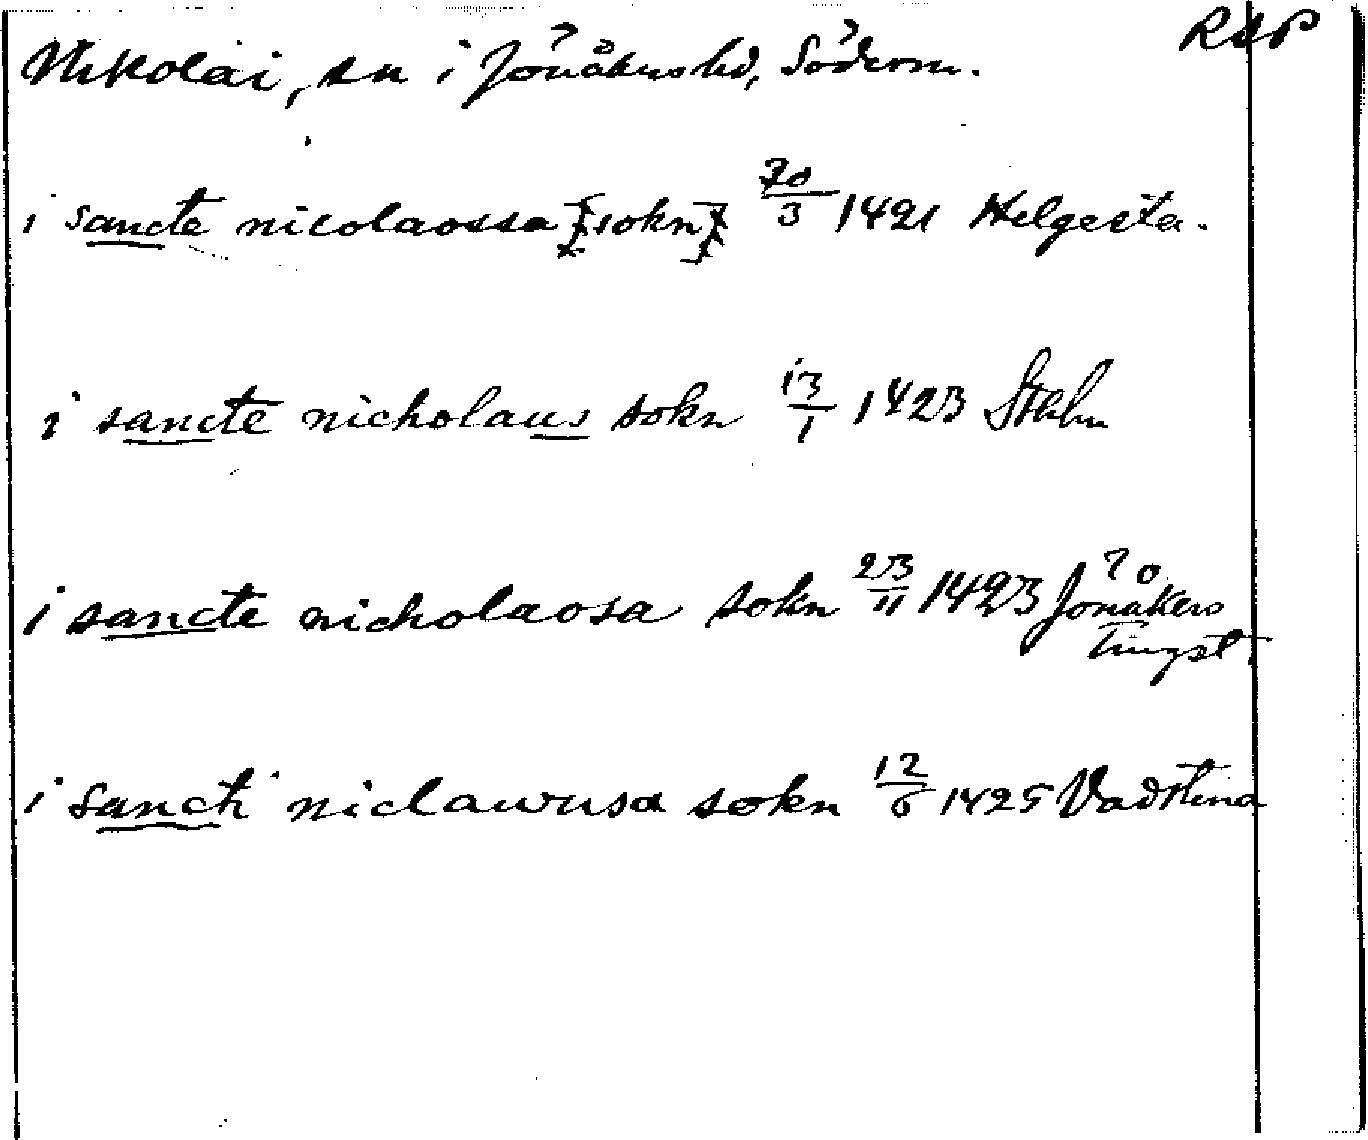 Nikolai, sn i Jönåkers hd, Söderm. RAP
i sancte nicolaossa [sokn] 20/3 1421 Helgesta.
i sancte nicholaus sokn 13/1 1423 Sthlm
i sancte nicholaosa sokn 23/11 1423 Jönåkers
Tingst.
i sancti niclawusa sokn 12/6 1425 Vadstena